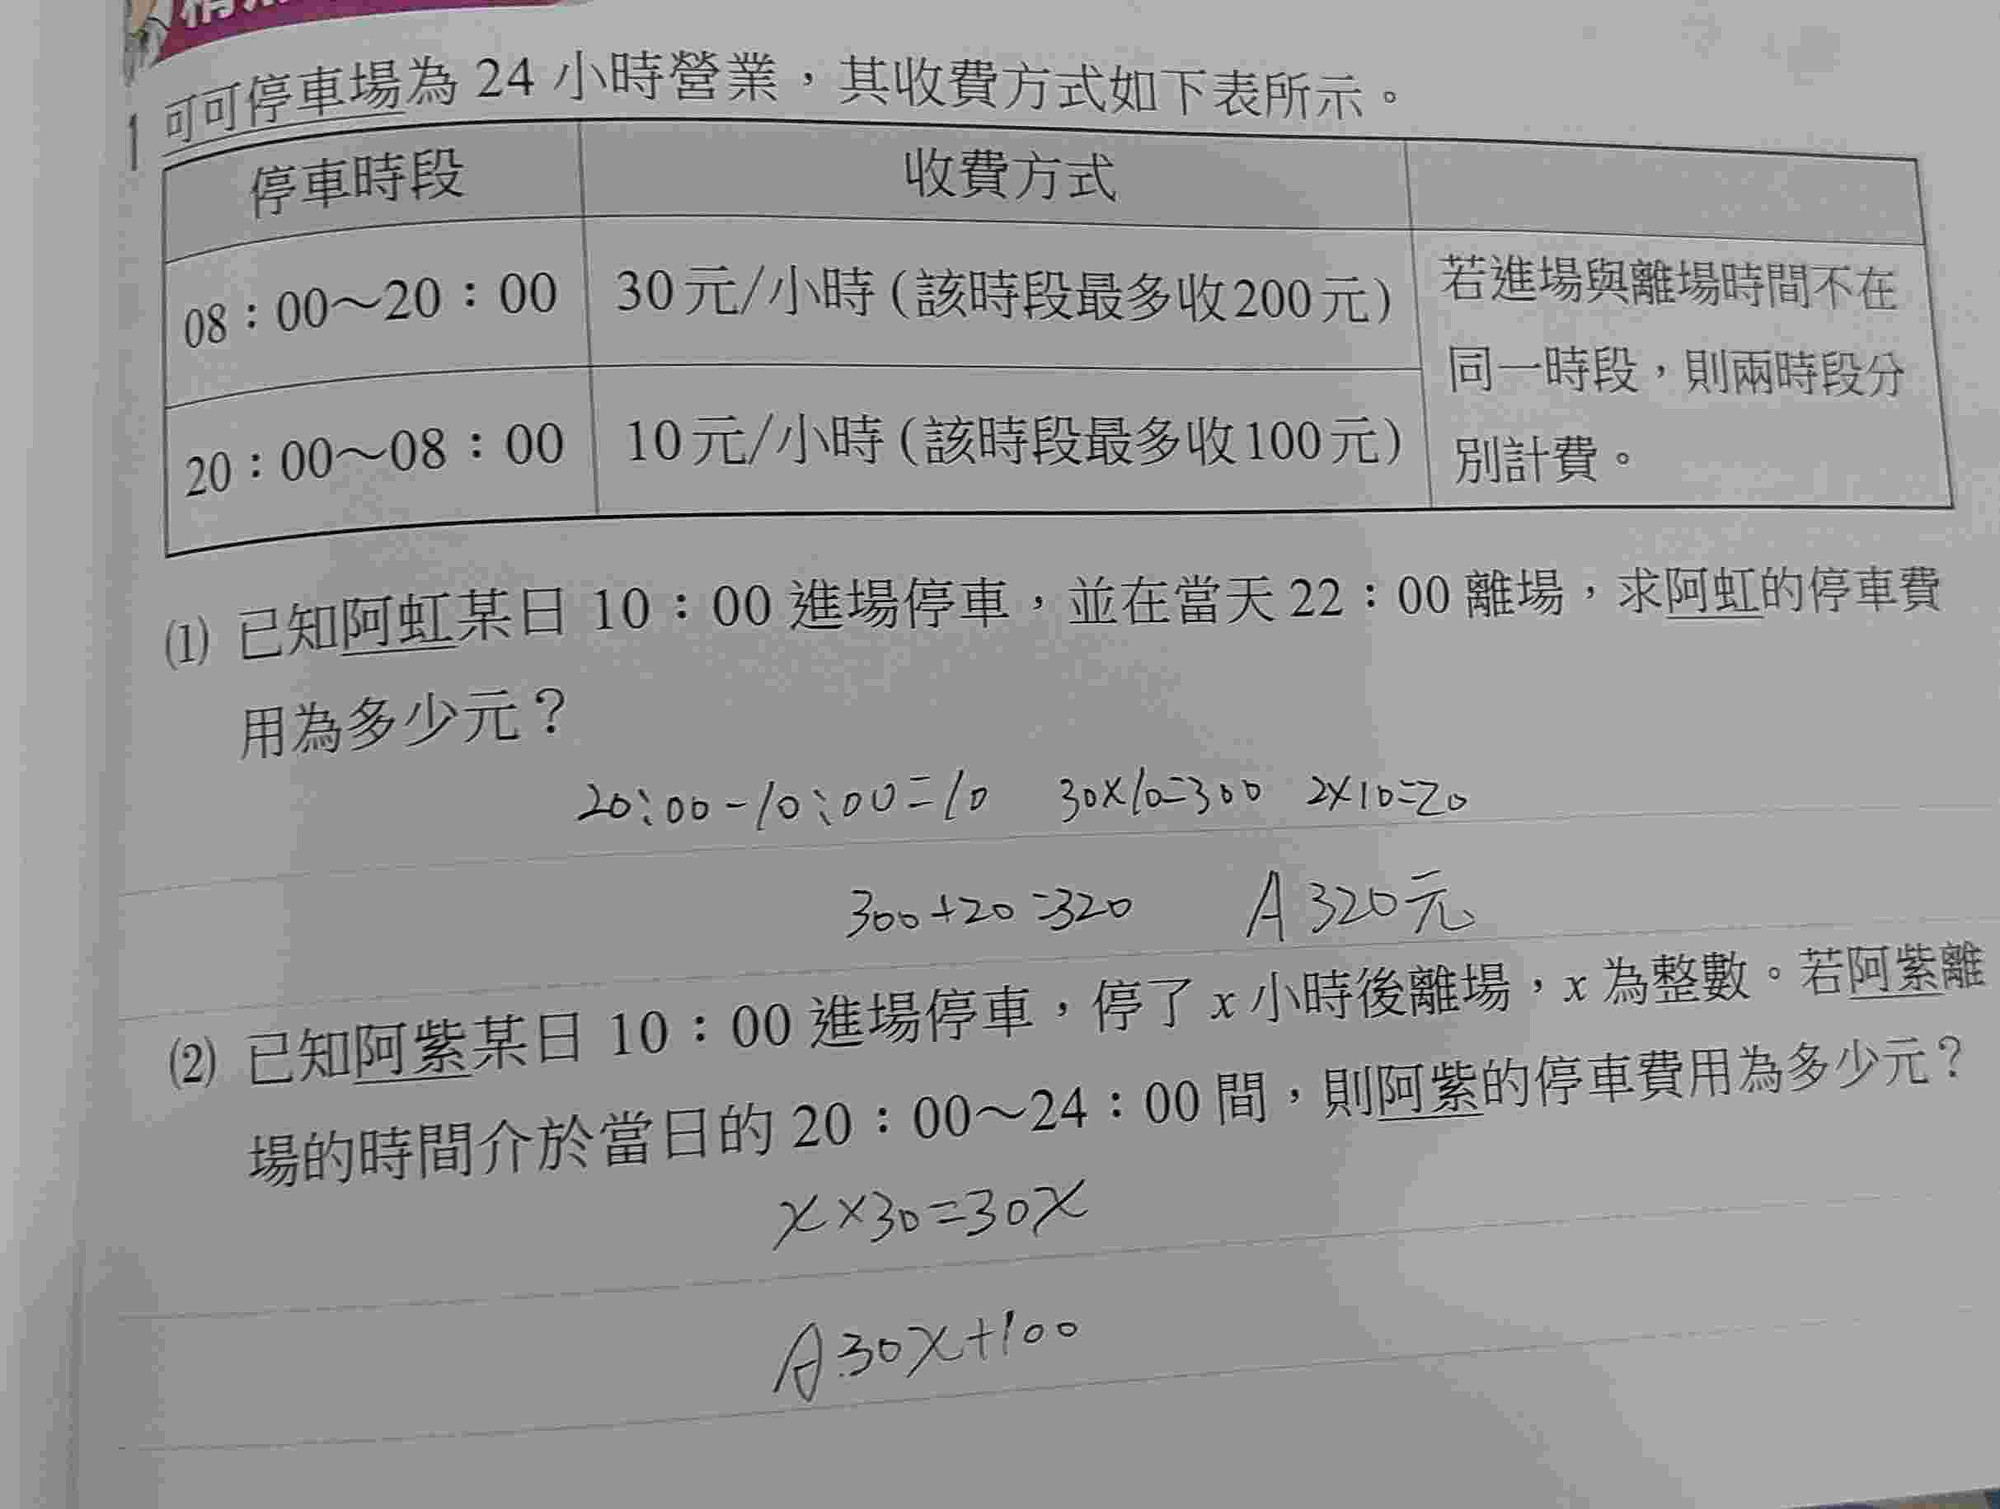 可可停車場為 24 小時營業，其收費方式如下表所示。
1
停車時段 收費方式
08：00～20：00 30元/小時(該時段最多收200元) 若進場與離場時間不在
同一時段，則兩時段分
20：00～08：00 10元/小時(該時段最多收100元) 別計費。
(1) 已知阿虹某日 10：00 進場停車，並在當天 22：00 離場，求阿虹的停車費
用為多少元？
20:00-10:00=10 30×10=300 2×10=20
300+20=320 A 320元
(2) 已知阿紫某日 10：00 進場停車，停了 x 小時後離場，x 為整數。若阿紫離
場的時間介於當日的 20：00～24：00 間，則阿紫的停車費用為多少元？
x×30=30x
A.30x+100